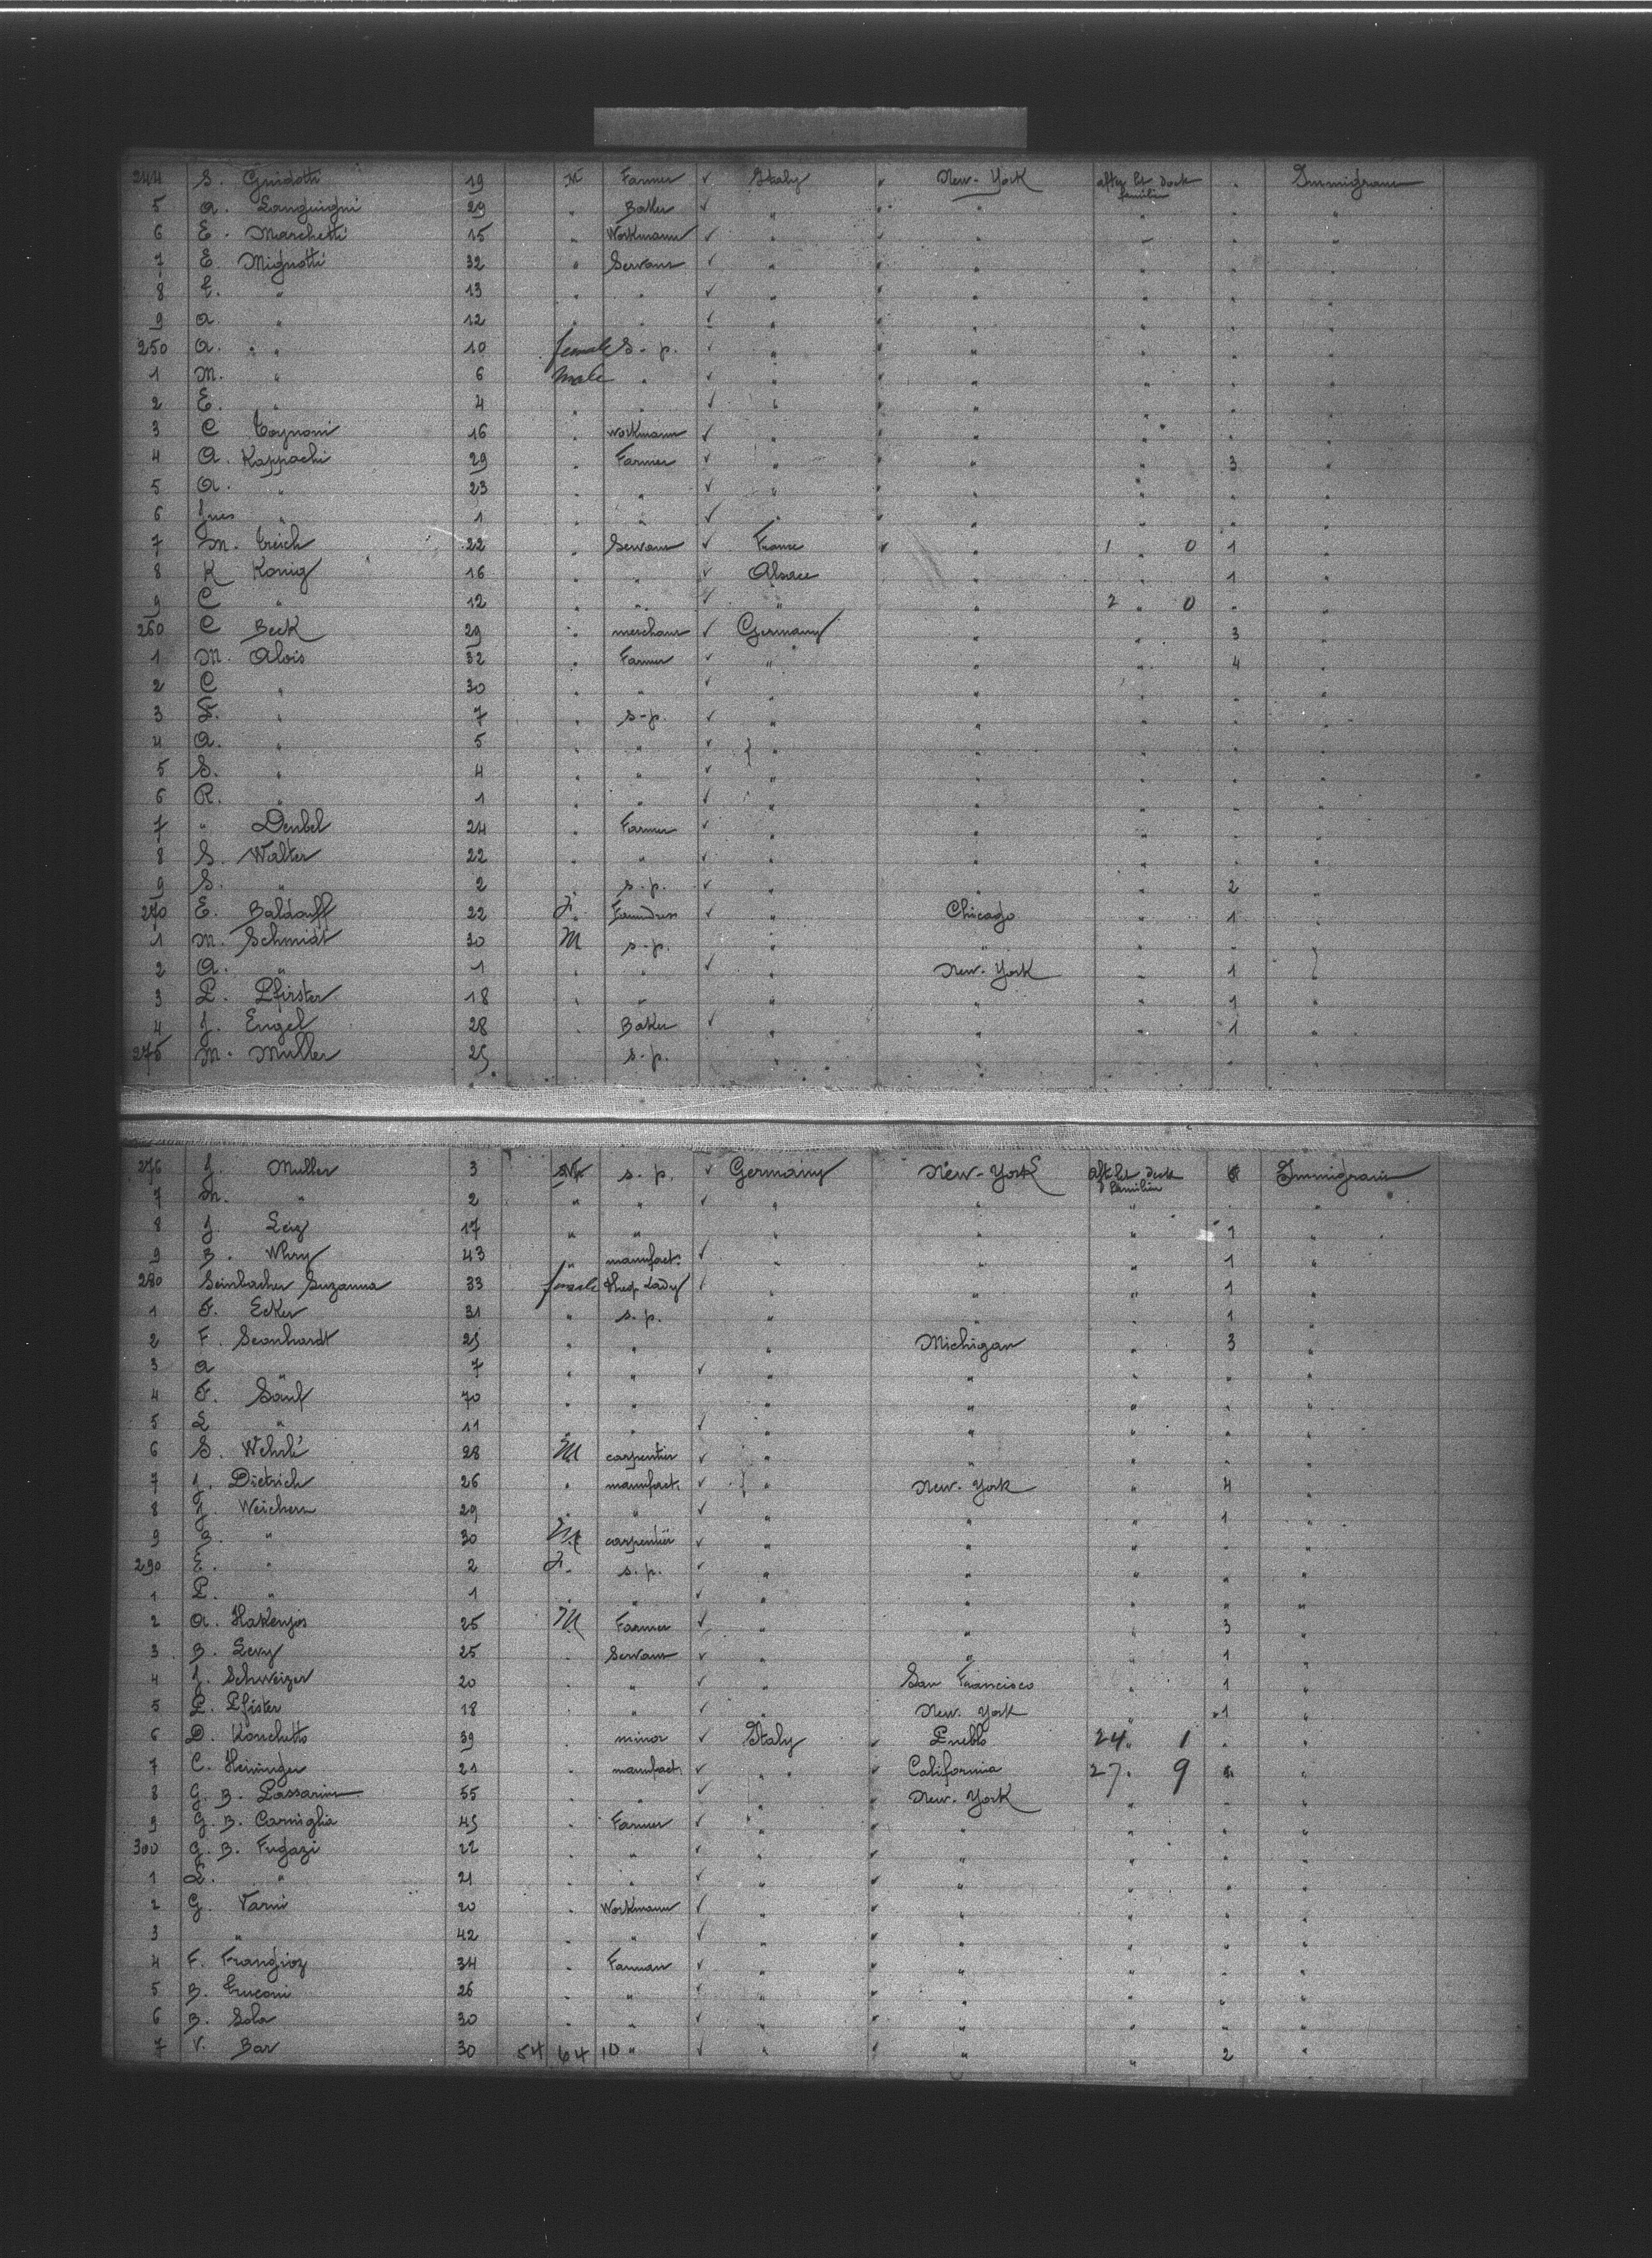 244 S. Guidotti 19 M Farmer ✓ Italy " New-York after bt Deck familien " Immigrant
5 A. Languigni 29 " Baker ✓ " " " " " "
6 E. Marchetti 15 " Workmann ✓ " " " " " "
7 E. Mignotti 32 " Servant ✓ " " " " " "
8 E. " 13 " " ✓ " " " " " "
9 A. " 12 " " ✓ " " " " " "
250 A. " 10 female s-p. ✓ " " " " " "
1 M. " 6 male " ✓ " " " " " "
2 E. " 4 " " ✓ " " " " " "
3 C Tognoni 16 " Workmann ✓ " " " " " "
4 A. Kappachi 29 " Farmer ✓ " " " " 3 "
5 A. " 23 " " ✓ " " " " " "
6 Ines " 1 " " ✓ " " " " " "
7 M. Treich 22 " Servant ✓ France " " 1 " 0 1 "
8 K König 16 " " ✓ Alsace " " 1 "
9 C " 12 " " ✓ " " 2 " 0 " "
260 C Beck 29 " merchant ✓ Germany " " 3 "
1 M. Alois 32 " Farmer ✓ " " " 4 "
2 C " 30 " " ✓ " " " " "
3 F. " 7 " s-p. ✓ " " " " "
4 A. " 5 " " ✓ " " " " "
5 S. " 4 " " ✓ " " " " "
6 R. " 1 " " ✓ " " " " "
7 " Deubel 24 " Farmer ✓ " " " " "
8 S. Walter 22 " " ✓ " " " " "
9 S. " 2 " s.p. ✓ " " " 2 "
270 E. Baldauff 22 F. ✓ " Chicago " 1 "
1 M. Schmidt 30 M s-p. " " " " "
2 A. " 1 " " ✓ " New-York " 1
3 L. Pfirster 18 " " " " " 1 "
4 J. Engel 28 " Baker ✓ " " " 1 "
275 M. Muller 25 s-p. " "
276 J. Muller 3 M s. p. ✓ Germany New-York Aft bt Deck Familien Immigrant
7 M. " 2 " " ✓ " " " " "
8 J. Leiz 17 " " " " " 1 "
9 B. Whry 43 " manufact. ✓ " " " 1 "
280 Seinbacher Suzanna 33 female Lady ✓ " " " 1 "
1 F. Ecker 31 " s.p. " " " 1 "
2 F. Leonhardt 25 " " " Michigan " 3 "
3 A " 7 " " ✓ " " " " "
4 F. Sauf 70 " " " " " " "
5 L " 11 " " ✓ " " " " "
6 S. Wehrlé 28 M carpentier ✓ " " " " "
7 J. Dietrich 26 " manufact. ✓ " New-York " 4 "
8 J. Weichern 29 " " ✓ " " " 1 "
9 G. " 30 M carpentier ✓ " " " " "
290 E. " 2 F. s.p. ✓ " " " " "
1 P. " 1 " " ✓ " " " " "
2 A. Hakenjos 25 M Farmer ✓ " " " 3 "
3 B. Levy 25 " Servant ✓ " " " 1 "
4 J. Schweizer 20 " " ✓ " San Francisco " 1 "
5 L. Pfister 18 " " ✓ " New-York " 1 "
6 D. Konchetto 39 " minor ✓ Italy " Pueblo 24 " 1 " "
7 C. Heininger 21 " manufact. ✓ " " California 27 " 9 " "
8 G. B. Passarini 55 " " ✓ " " New-York " " "
9 G. B. Carniglia 45 " Farmer ✓ " " " " " "
300 G. B. Fugazi 22 " " ✓ " " " " " "
1 L. " 21 " " ✓ " " " " " "
2 G. Varni 20 " Workmann ✓ " " " " " "
3 " 42 " " ✓ " " " " " "
4 F. Frangioz 34 " Farmer ✓ " " " " " "
5 B. Truconi 26 " " ✓ " " " " " "
6 B. Sola 30 " " ✓ " " " " " "
7 V. Bar 30 54 64 10 " ✓ " " " " 2 "